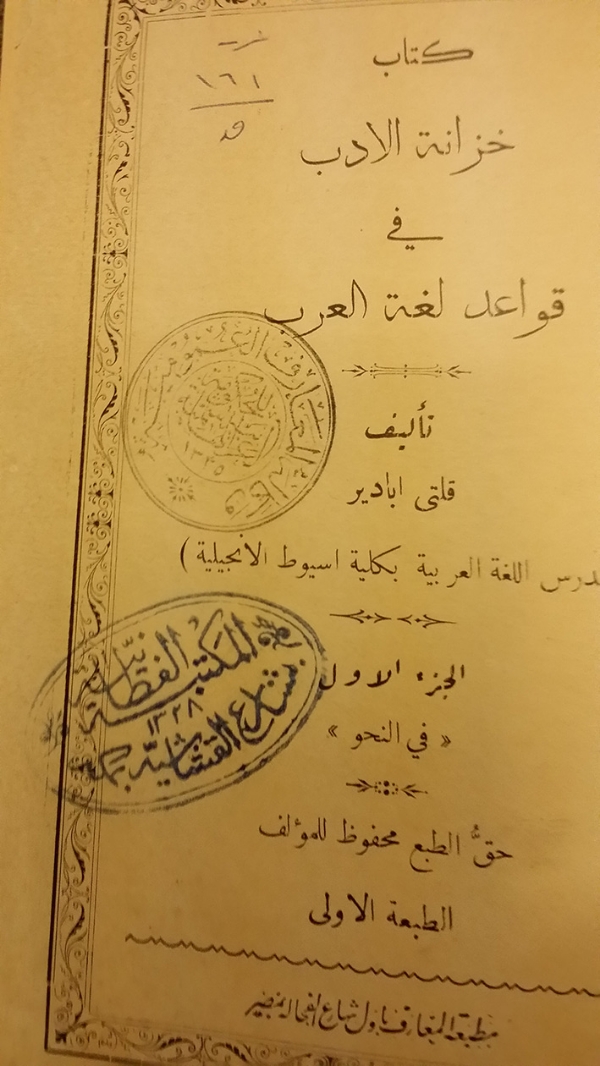 كتاب
١٦١
خزانة الادب
في
قواعد لغة العرب
تأليف
قلتى ابادير
مدرس اللغة العربية بكلية اسيوط الانجيلية )
الجزء الاول
« في النحو »
حقُّ الطبع محفوظ للمؤلف
الطبعة الاولى
مطبعة المعارف باول شارع الفجالة بمصر
المعارف العمومية
١٣٣٥
المكتبة
١٣٢٨
بشارع القشاشية بمكة